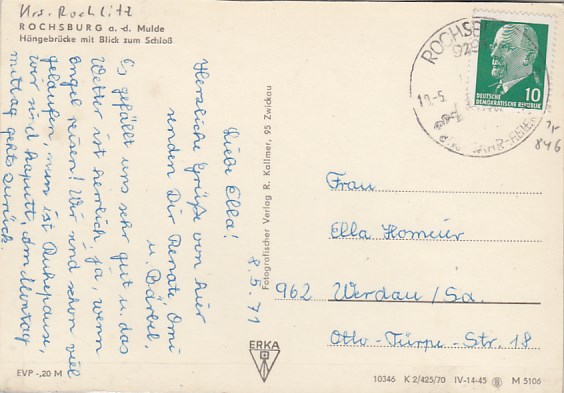 Krs. Rochlitz
ROCHSBURG a. d. Mulde
Hängebrücke mit Blick zum Schloß
8.5.71
Liebe Ella!
Herzliche Grüße von hier
senden Dir Renate Omi
u. Bärbel.
Es gefällt uns sehr gut u. das
Wetter ist herrlich ja, wenn
Engel reisen! Wir sind schon viel
gelaufen, nun ist Ruhepause,
wir sind kaputt. Am Montag
mittag gehts zurück.
Fotografischer Verlag R. Kallmer, 95 Zwickau
ERKA
EVP -,20 M
ROCHSB
929
DEUTSCHE
DEMOKRATISCHE REPUBLIK
10
846
Frau
Ella Homeier
962 Werdau/Sa.
Otto-Türpe-Str. 18
10346 K 2/425/70 IV-14-45 M 5106